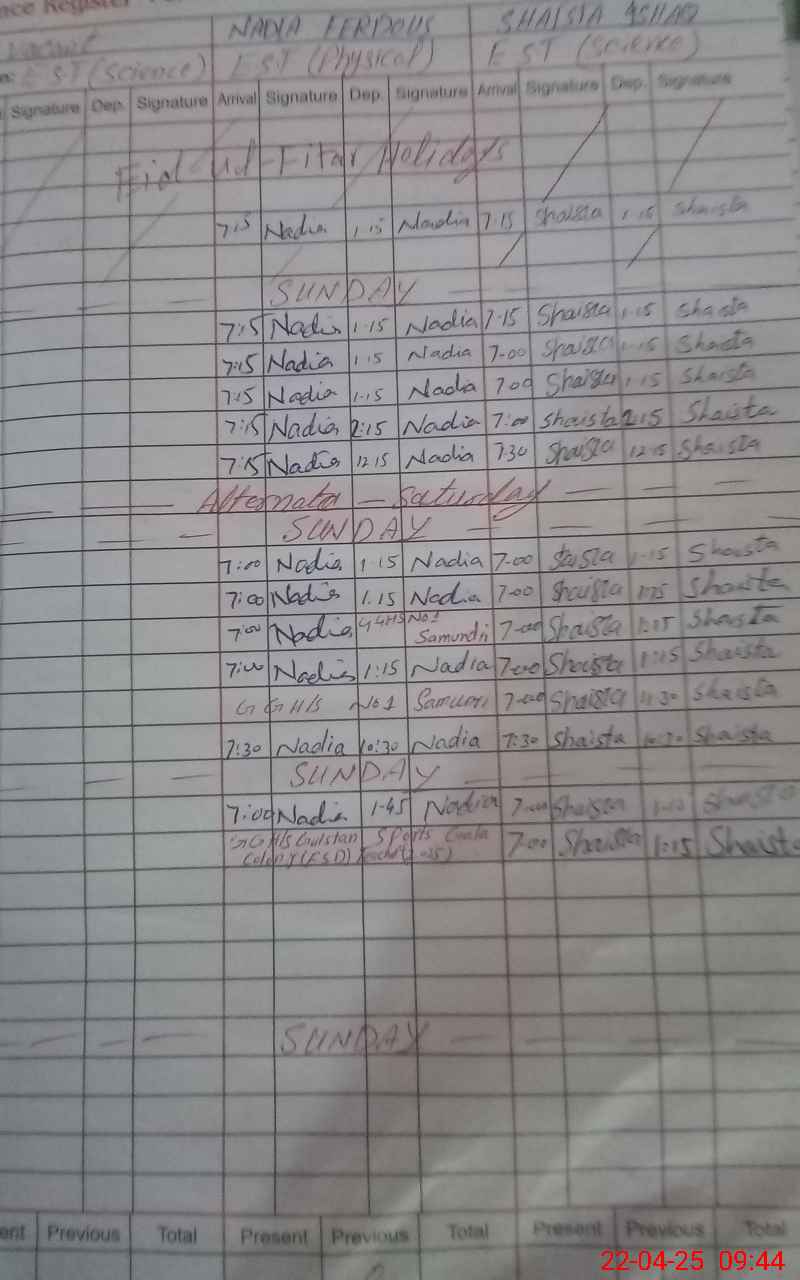 nce Register
Vacant NADIA FERDOUS SHAISTA ISHAQ
EST (Science) EST (Physical) EST (Science)
Signature Dep. Signature Arrival Signature Dep. Signature Arrival Signature Dep. Signature
Eid-ul-Fitar Holidays
7:15 Nadia 1.15 Nadia 7.15 Shaista 1.15 Shaista
SUNDAY
7:15 Nadia 1.15 Nadia 7.15 Shaista 1.15 Shaista
7:15 Nadia 1.15 Nadia 7-00 Shaista 1.15 Shaista
7:15 Nadia 1.15 Nadia 7.00 Shaista 1.15 Shaista
7:15 Nadia 12:15 Nadia 7:00 Shaista 12.15 Shaista
7:15 Nadia 12.15 Nadia 7.30 Shaista 12.15 Shaista
Alternate - Saturday
SUNDAY
7:00 Nadia 1.15 Nadia 7-00 Shaista 1.15 Shaista
7:00 Nadia 1.15 Nadia 7-00 Shaista 1.15 Shaista
7:00 Nadia No1 Samundri 7-00 Shaista 1:15 Shaista
7:00 Nadia 1:15 Nadia 7-00 Shaista 1:15 Shaista
GGHS No 1 7-00 Shaista 11.30 Shaista
7:30 Nadia 10:30 Nadia 7:30 Shaista 10:30 Shaista
SUNDAY
7:00 Nadia 1-45 Nadia 7-00 Shaista Shaista
GGHS Gulstan Sports Gaala 7-00 Shaista 1:15 Shaista
Colony (FSD)
SUNDAY
ent Previous Total Present Previous Total Present Previous Total
22-04-25 09:44